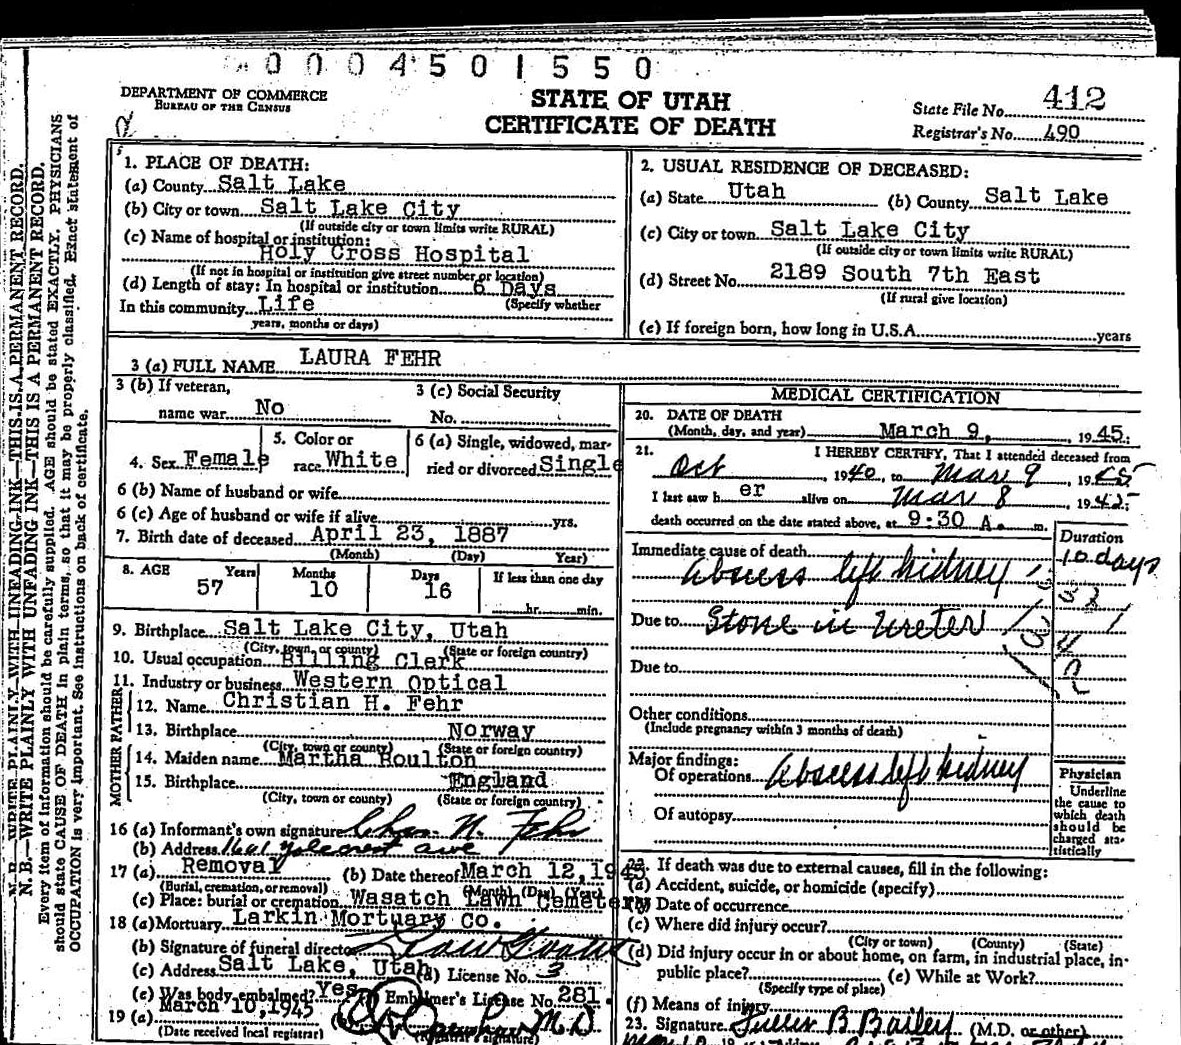 0004501550
DEPARTMENT OF COMMERCE
BUREAU OF THE CENSUS
STATE OF UTAH
CERTIFICATE OF DEATH
State File No. 412
Registrar's No. 490
N.B.—WRITE PLAINLY WITH UNFADING INK—THIS IS A PERMANENT RECORD.
N.B.—WRITE PLAINLY WITH UNFADING INK—THIS IS A PERMANENT RECORD.
Every item of information should be carefully supplied. AGE should be stated EXACTLY. PHYSICIANS
should state CAUSE OF DEATH in plain terms, so that it may be properly classified. Exact statement of
OCCUPATION is very important. See instructions on back of certificate.
1. PLACE OF DEATH:
(a) County Salt Lake
(b) City or town Salt Lake City
(If outside city or town limits write RURAL)
(c) Name of hospital or institution:
Holy Cross Hospital
(If not in hospital or institution give street number or location)
(d) Length of stay: In hospital or institution 6 Days
In this community Life (Specify whether
years, months or days)
2. USUAL RESIDENCE OF DECEASED:
(a) State Utah (b) County Salt Lake
(c) City or town Salt Lake City
(If outside city or town limits write RURAL)
(d) Street No. 2189 South 7th East
(If rural give location)
(e) If foreign born, how long in U.S.A. years
3 (a) FULL NAME LAURA FEHR
3 (b) If veteran,
name war No
3 (c) Social Security
No.
4. Sex Female
5. Color or
race White
6 (a) Single, widowed, mar-
ried or divorced Single
6 (b) Name of husband or wife
6 (c) Age of husband or wife if alive yrs.
7. Birth date of deceased April 23, 1887
(Month) (Day) Year)
8. AGE Years Months Days If less than one day
57 10 16 hr. min.
9. Birthplace Salt Lake City, Utah
(City, town, or county) (State or foreign country)
10. Usual occupation Billing Clerk
11. Industry or business Western Optical
FATHER
12. Name Christian H. Fehr
13. Birthplace Norway
(City, town or county) (State or foreign country)
MOTHER
14. Maiden name Martha Boulton
15. Birthplace England
(City, town or county) (State or foreign country)
16 (a) Informant's own signature Chas. N. Fehr
(b) Address 1661 Yalecrest Ave
17 (a) Removal (b) Date thereof March 12, 1945
(Burial, cremation, or removal) (Month) (Day) (Year)
(c) Place: burial or cremation Wasatch Lawn Cemetery
18 (a) Mortuary Larkin Mortuary Co.
(b) Signature of funeral director
(c) Address Salt Lake, Utah (d) License No. 3
(e) Was body embalmed? Yes (f) Embalmer's License No. 281.
19 (a) March 10, 1945 M.D.
(Date received local registrar) (Registrar's signature)
MEDICAL CERTIFICATION
20. DATE OF DEATH
(Month, day, and year) March 9, 1945:
21. I HEREBY CERTIFY, That I attended deceased from
Oct 1940, to Mar 9, 1945
I last saw her alive on Mar 8 1945
death occurred on the date stated above, at 9:30 A. m.
Duration
Immediate cause of death 10 days
Abscess left kidney
Due to Stone in Ureter
Due to
Other conditions
(Include pregnancy within 3 months of death)
Major findings:
Of operations Abscess left kidney
Of autopsy
Physician
Underline
the cause to
which death
should be
charged sta-
tistically
22. If death was due to external causes, fill in the following:
(a) Accident, suicide, or homicide (specify)
(b) Date of occurrence
(c) Where did injury occur?
(City or town) (County) (State)
(d) Did injury occur in or about home, on farm, in industrial place, in-
public place? (e) While at Work?
(Specify type of place)
(f) Means of injury
23. Signature B. Bailey (M.D. or other)